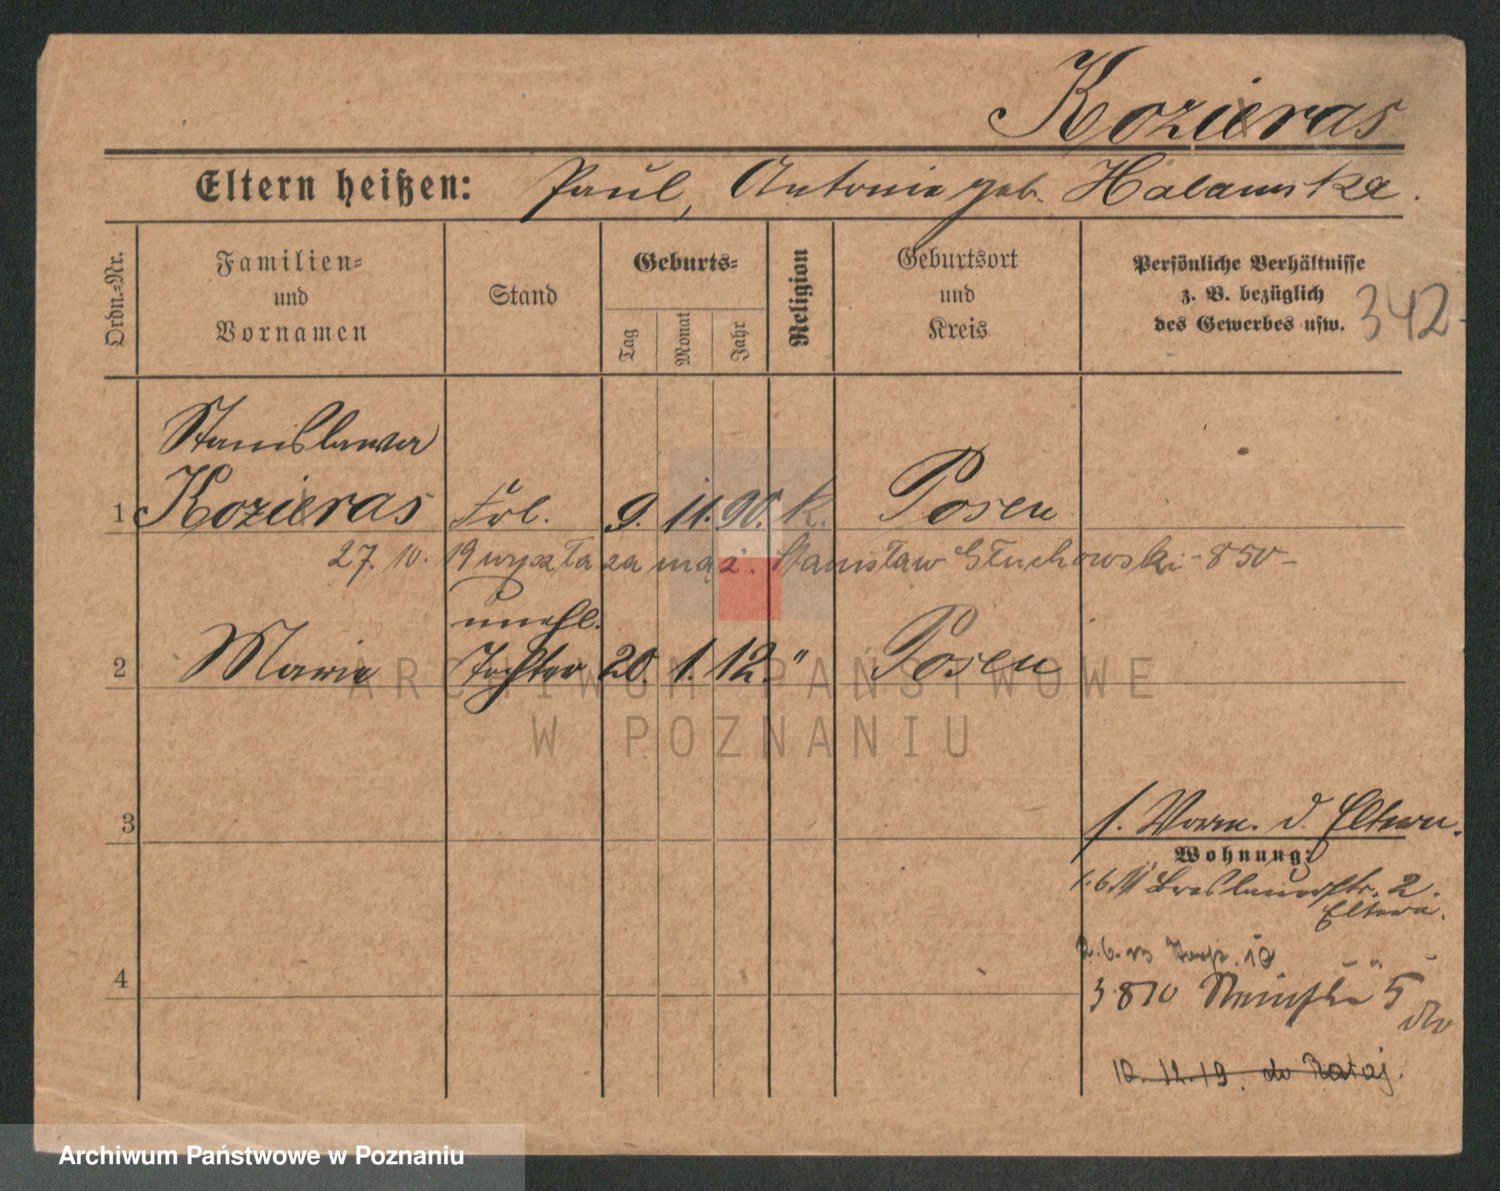 Kozieras
Eltern heißen: Paul, Antonie geb. Halamska.
Ordn.-Nr.
Familien-
und
Vornamen
Stand
Geburts-
Tag
Monat
Jahr
Religion
Geburtsort
und
Kreis
Persönliche Verhältnisse
z. B. bezüglich
des Gewerbes usw.
342
Stanislawa
1 Kozieras Frl. 9. 11. 90. k. Posen
27. 10. 19 wyszła za mąż. Stanisław Głuchowski - 850 -
unehl.
2 Marie Tochter 20. 1. 12. " Posen
3
s. Worm. d. Eltern.
Wohnung:
Breslauerstr. 2.
Eltern.
2. 6. 13 18
5
4
12. 12. 19. do Rataj.
ARCHIWUM PAŃSTWOWE
W POZNANIU
Archiwum Państwowe w Poznaniu